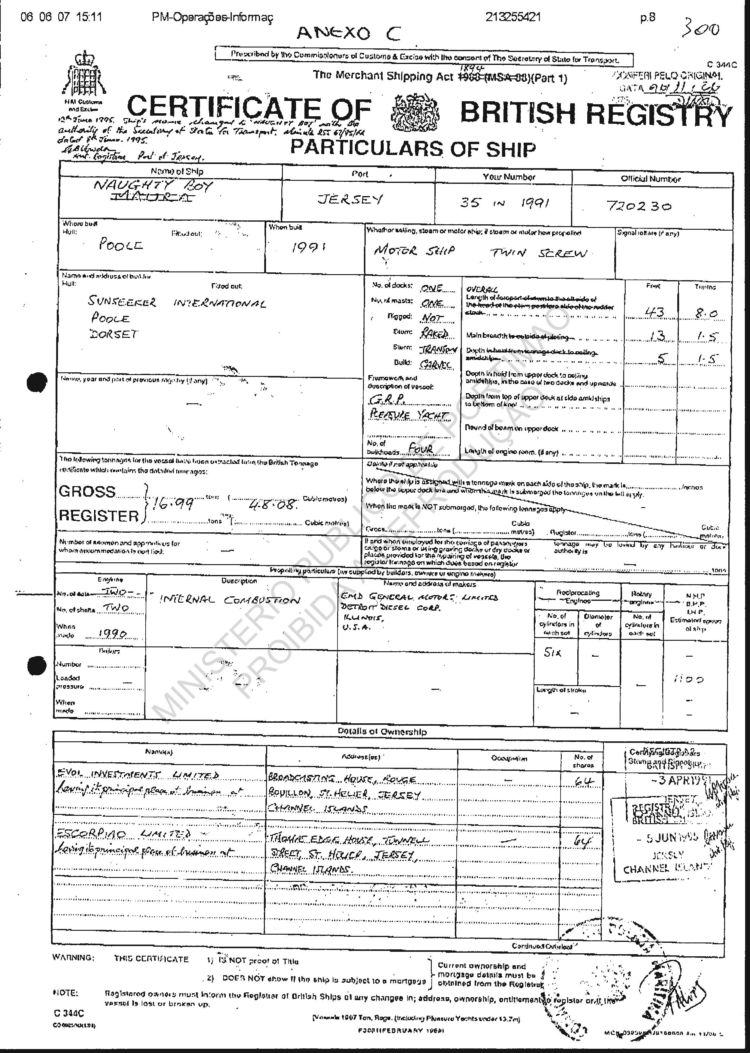 06 06 07 15:11 PM-Operações-Informaç 213255421 p.8
ANEXO C 300
Prescribed by the Commissioners of Customs & Excise with the consent of The Secretary of State for Transport.
C 344C
1894
The Merchant Shipping Act 1988 (MSA 88)(Part 1)
CONFERI PELO ORIGINAL
DATA
HM Customs
and Excise
CERTIFICATE OF BRITISH REGISTRY
12th June 1995. Ship's name changed to NAUGHTY BOY with the
authority of the Secretary of State for Transport, Minute RSS
dated 9th June 1995.
Port of Jersey.
PARTICULARS OF SHIP
Name of Ship Port Your Number Official Number
NAUGHTY BOY
MAURA JERSEY 35 IN 1991 720230
Where built When built Whether sailing, steam or motor ship; if steam or motor how propelled Signal letters (if any)
Hull: Fitted out:
POOLE 1991 MOTOR SHIP TWIN SCREW
Name and address of builder
Hull: Fitted out:
SUNSEEKER INTERNATIONAL
POOLE
DORSET
No. of decks: ONE
No. of masts: ONE
Rigged: NOT
Stem: RAKED
Stern: TRANSOM
Build: CARVEL
Framework and
description of vessel:
G.R.P.
PLEASURE YACHT
No. of
bulkheads FOUR
Feet Tenths
OVERALL
Length of forepart of stem to the aft side of
the head of the stern post/fore side of the rudder
stock 43 8.0
Main breadth to outside of plating 13 1.5
Depth in hold from tonnage deck to ceiling
amidships 5 1.5
Depth in hold from upper deck to ceiling
amidships, in the case of two decks and upwards
Depth from top of upper deck at side amidships
to bottom of keel
Round of beam on upper deck
Length of engine room, (if any)
Name, year and port of previous registry (if any)
The following tonnages for the vessel have been extracted from the British Tonnage
certificate which contains the detailed tonnages:
GROSS 16.99 tons ( 48.08 Cubic metres)
REGISTER tons ( Cubic metres)
Number of seamen and apprentices for
whom accommodation is certified:
Delete if not applicable
Where the ship is assigned with a tonnage mark on each side of the ship, the mark is inches
below the upper deck line and when the mark is submerged the tonnages on the left apply.
When the mark is NOT submerged, the following tonnages apply
Gross tons ( Cubic metres) Register ( Cubic metres)
If and when employed for the carriage of passengers
cargo or stores or using graving docks or dry docks or
places provided for the repairing of vessels, the
register tonnage on which dues based on register
tonnage may be levied by any harbour or dock
authority is tons
Propelling particulars (as supplied by builders, owners or engine makers)
Engine Description Name and address of makers Reciprocating Engines Rotary engines N.H.P.
B.H.P.
I.H.P.
Estimated speed
of ship
No. of sets TWO
No. of shafts TWO
When
made 1990
INTERNAL COMBUSTION
EMD GENERAL MOTORS LIMITED
DETROIT DIESEL CORP.
ILLINOIS,
U.S.A.
No. of
cylinders in
each set
Diameter
of
cylinders
No. of
cylinders in
each set
SIX — —
Boilers
Number
Loaded
pressure
When
made
Length of stroke
1100
MINISTÉRIO PÚBLICO DE PORTIMÃO
PROIBIDA A REPRODUÇÃO
Details of Ownership
Name(s) Address(es) Occupation No. of
shares Certifying Registrars
Stamp and Signature
EVOL INVESTMENTS LIMITED
having its principal place of business at
BROADCASTING HOUSE, ROUGE
BOUILLON, ST. HELIER, JERSEY
CHANNEL ISLANDS
— 64
-3 APR 1991
ESCORPIAO LIMITED
having its principal place of business at
THOMAS EDGE HOUSE, TUNNELL
STREET, ST. HELIER, JERSEY,
CHANNEL ISLANDS.
— 64
- 5 JUN 1995
JERSEY
CHANNEL ISLANDS
Continued Overleaf
WARNING: THIS CERTIFICATE 1) IS NOT proof of Title
2) DOES NOT show if the ship is subject to a mortgage
Current ownership and
mortgage details must be
obtained from the Registrar
NOTE: Registered owners must inform the Registrar of British Ships of any changes in; address, ownership, entitlement to register or if the
vessel is lost or broken up.
C 344C
(Vessels 1967 Ton. Regs. (including Pleasure Yachts under 13.7m)
F3001(FEBRUARY 1989)